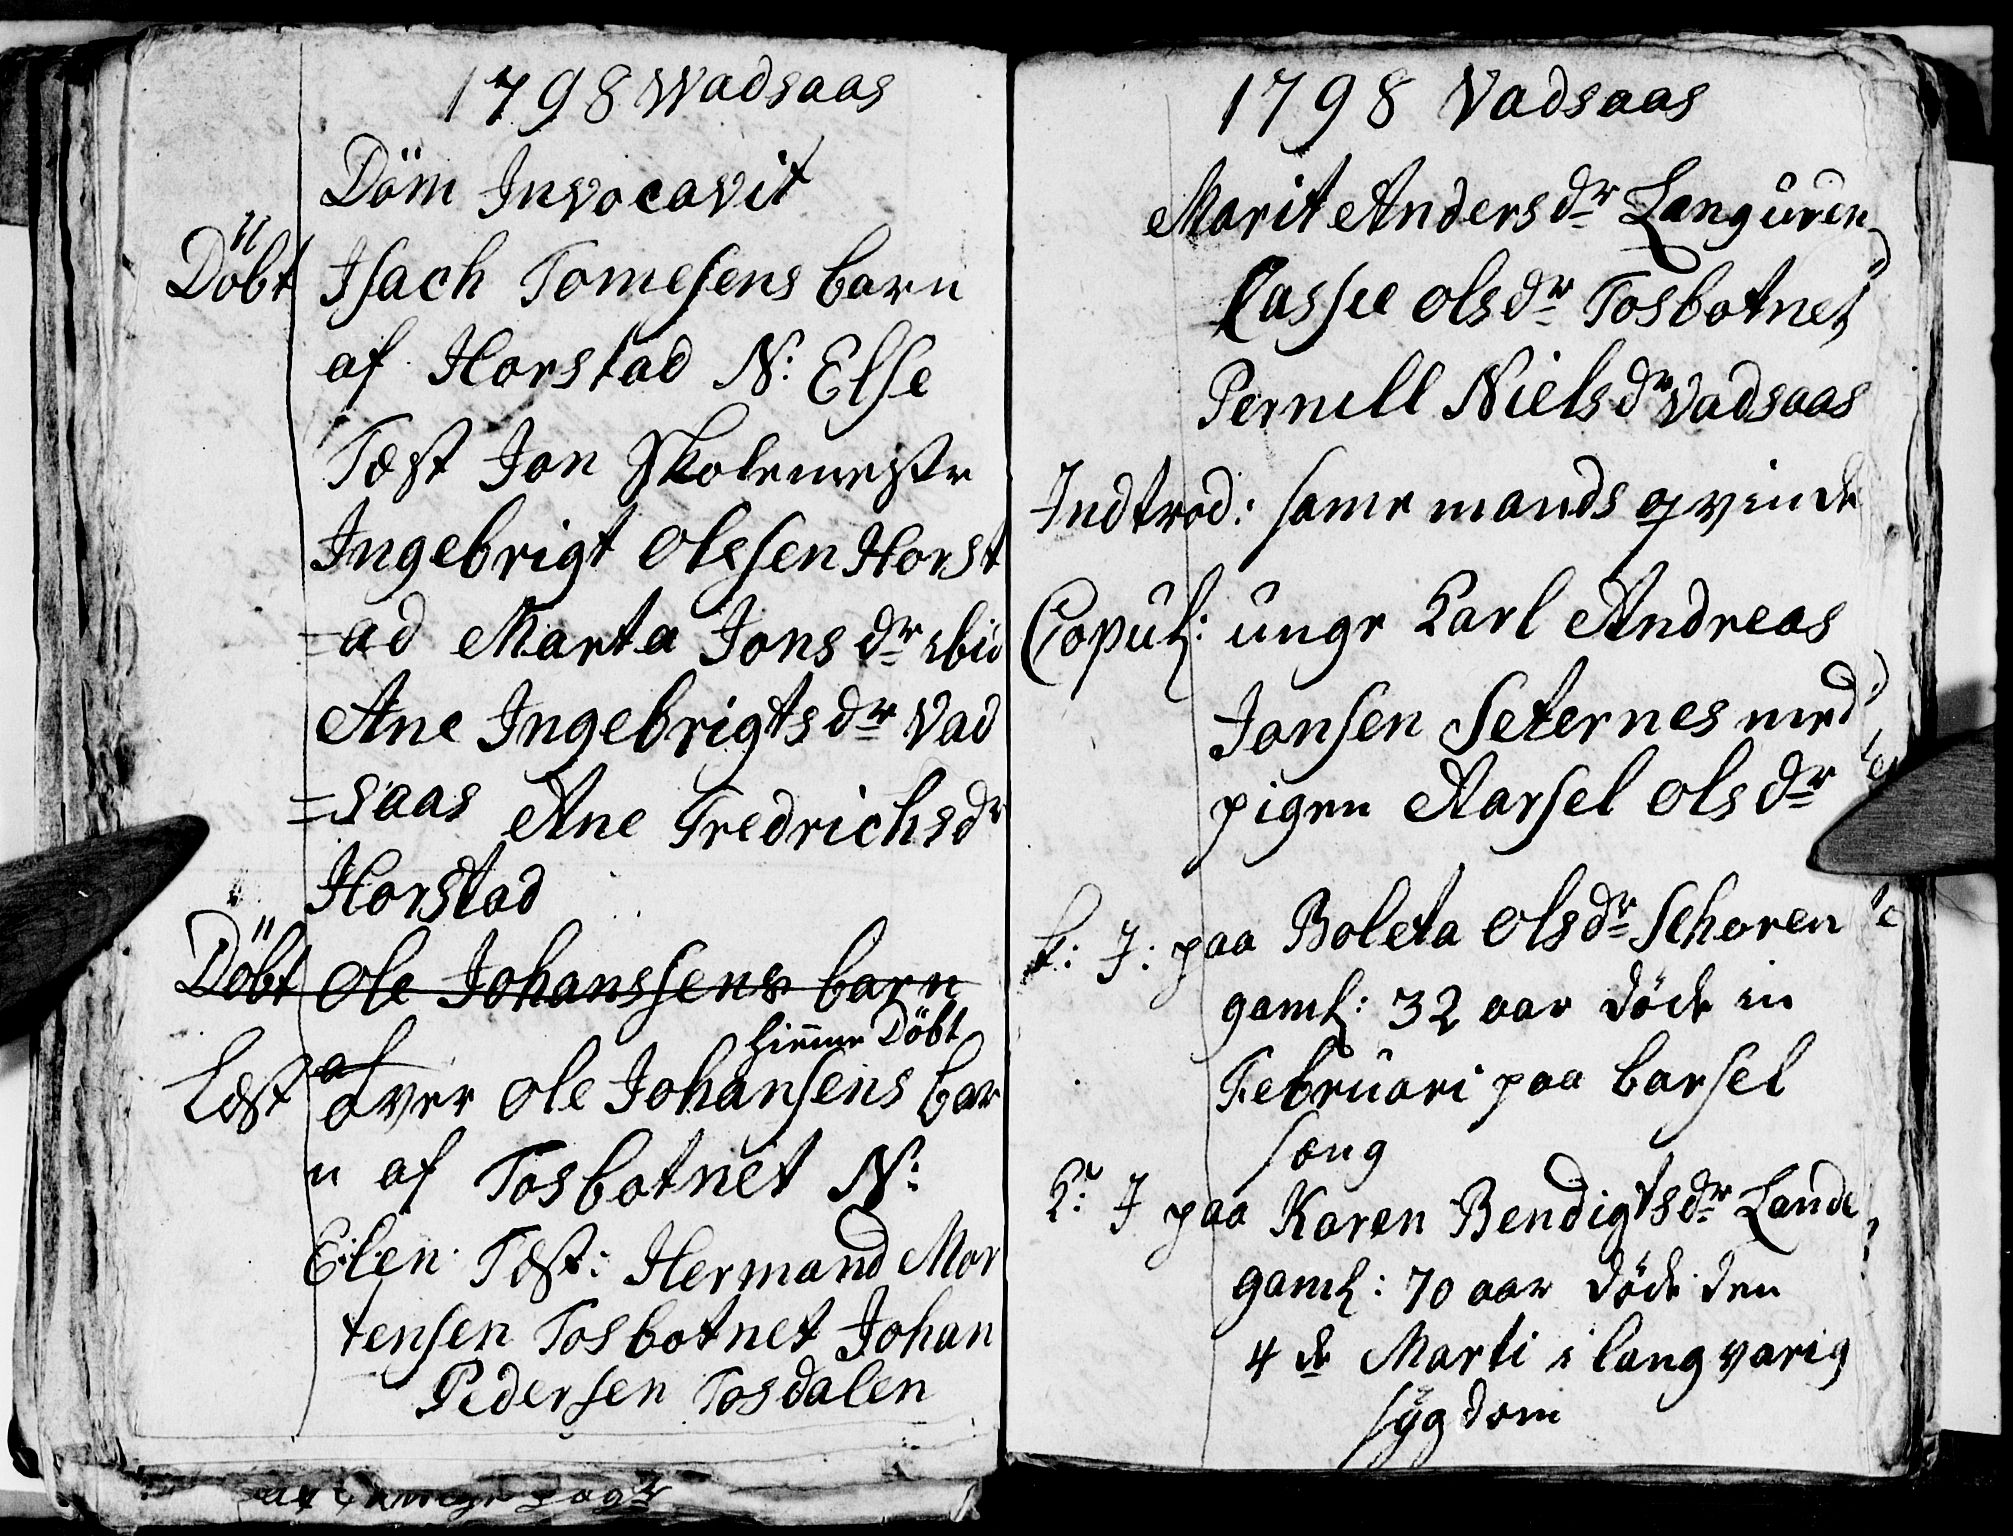 1798 Wadsaas
Döm Invocavit
Döbt Isach Tomesens barn
af Horstad N: Else
Tæst Jon Skolemestr
Ingebrigt Olssen Horst
=ad Marta Jons dr ibid
Ane Ingebrigts dr Vad
=saas Ane Fredrichsdr
Horstad
Döbt Ole Johanssens barn
af
hiemme Döbt
Læst over Ole Johansens bar
n af Tosbotnet N:
Elen Tæst: Hermand Mor
tensen Tosbotnet Johan
Pedersen Tosdalen
1798 Vadsaas
Marit Anders dr Languren
Cassee Olsdr Tosbotnet
Pernill Niels dr Vadsaas
Indtræd: same mands qvinde
Copul: unge Karl Andreas
Jonsen Seternes med
pigen Aarsel Ols dr
k: J: paa Boleta Olsdr Schoren
gaml: 32 aar döde in
Februari paa barsel
sæng
K: J paa Karen Bendigtsdr Lande
gaml: 70 aar döde den
4 de Marti i langvarig
sÿgdom